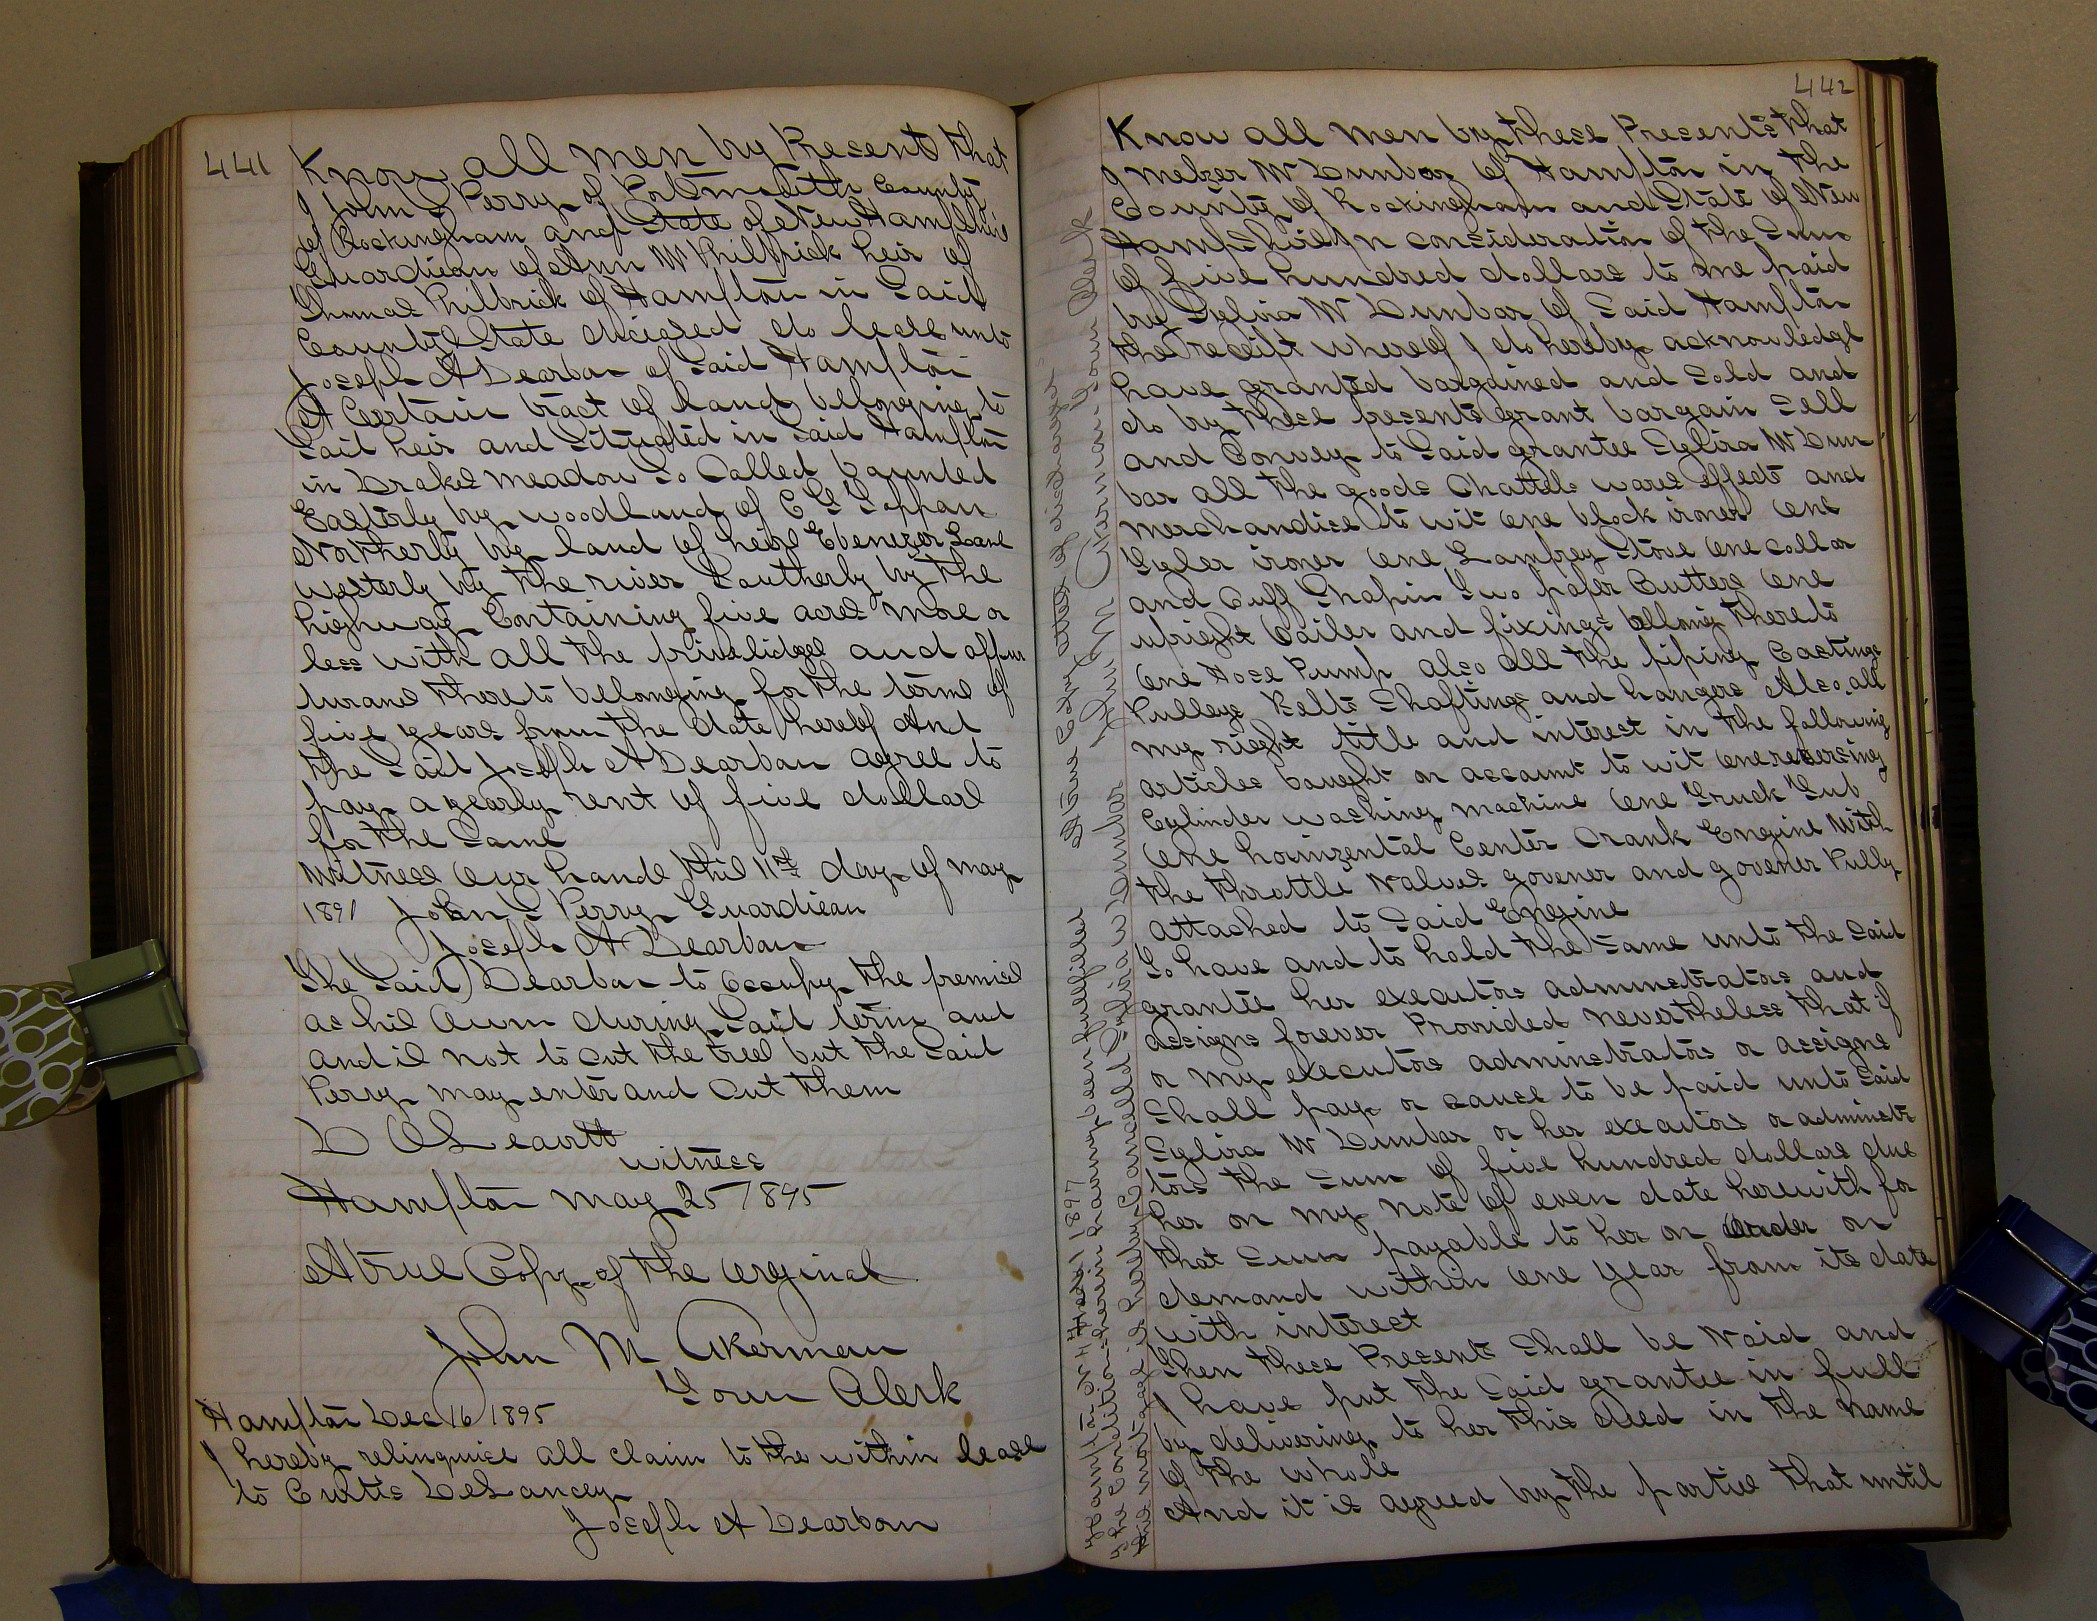 441
Know all men by Present that
I John S Perry of Portsmouth County
of Rockingham and State of New Hampshire
Guardiean of Ann M Philbrick heir of
Thomas Philbrick of Hampton in Said
County & State deciesed do lease unto
Joseph A Dearbon of Said Hampton
A Certain tract of land belonging to
Said heir and Situated in Said Hampton
in Drakes meadow So Called bounded
Easterly by woodland of C G Toppan
Northerly by land of heirs Ebenezer Lane
westerly by the river Southerly by the
highway Containing five acres more or
less with all the privelidges and appur
turans thereto belonging for the terms of
five years from the date hereof And
the Said Joseph A Dearbon agree to
pay a yearly rent of five dollars
for the Same
Witness our hands this 11th day of may
1891 John S Perry Guardiean
Joseph A Dearbon
The Said Dearbon to Occupy the premises
as his own during Said term and
and is not to cut the trees but the Said
Perry may enter and cut them
D O Leavitt
witness
Hampton may 25 1895
A true Copy of the orginal
John M Akerman
Town Clerk
Hampton Dec 16 1895
I hereby relinquise all claim to the within lease
to Curtis DeLancey
Joseph A Dearbon
442
Know all men by these Presents that
I melzer W Dunbar of Hampton in the
County of Rockingham and State of New
Hampshire In consideration of the Sum
of five hundred dollars to me paid
by Sylvia W Dunbar of Said Hampton
the receipt whereof I do hereby acknowledge
have granted bargained and Sold and
do by these presents grant bargain Sell
and Convey to Said grantee Sylvia W Dun
bar all the goods Chattels wares effects and
merchandise to wit one block ironer one
Tyler ironer one Lamprey Stove one collar
and cuff Shapin Two paper Cutters one
upright boiler and fixings bellong thereto
One Hose Pump also all the piping Castings
Pulleys Belts Shaftings and hangers Also all
my right title and interest in the following
articles bought on account to wit one reversing
Cylinder washing machine one Truck Tub
One hoirzental Center Crank Engine With
the throttle Valves govener and govener Pully
attached to Said Engine
To have and to hold the Same unto the Said
grantee her executors adminstrators and
assigns forever Provided nevertheless that if
or my executors adminestrators or assigns
Shall pay or cause to be paid unto Said
Sylvia W Dunbar or her executors or adminstr
tors the Sum of five hundred dollars due
her on my note of even date herewith for
that Sum payable to her on order on
demand within one year from its date
with interest
Then these Present Shall be Void and
I have put the Said grantee in full
by delivering to her this deed in the name
of the whole
And it is agreed by the parties that until
Hampton N H 1 1897
The Conditions herein having been fullfilled
this mortgage is hereby Cancelled Sylvia W Dunbar
A true Copy attest
John M Akerman Town Clerk